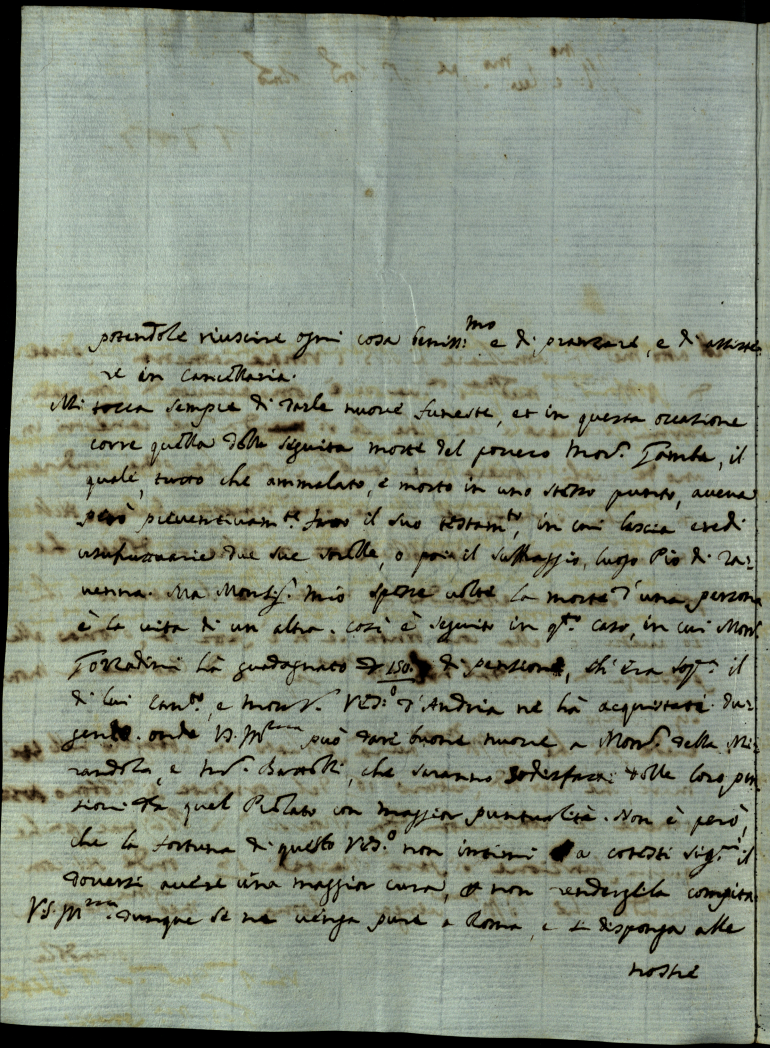 potendole riuscire ogni cosa beniss:mo e di pranzare, e di assiste=
re in Cancellaria.
Mi tocca sempre di darle nuove funeste, et in questa occasione
corre quella della seguita morte del povero Mons.r Gamba, il
quale, tutto che ammalato, è morto in uno stesso punto, aveva
però preventivam.te fatto il suo testam.to, in cui lascia eredi
usufruttuarie due sue sorelle, o poi il Suffraggio, luogo Pio di Ra=
venna. Ma Monsig.r mio spesse volte la morte d'una persona
è la vita di un altra. Così è seguito in q.to caso, in cui Mons.r
hà guadagnato 150 di pensione, ch'era sop.a il
di lui Can.to, e Mons.r Ves.o d'Andria ne hà acquistate du=
gento. onde V.S. Ill.ma può dare buone nuove a Mons.r della Mi=
randola, e Mr. che saranno sodisfatti delle loro pen
sioni da quel Prelato con maggior puntualità. Non è però,
che la fortuna di questo Ves.o non intimi a cotesti Sig.ri il
doversi avere una maggior cura, e non rendergila compita.
V.S. Ill.ma dunque se ne venga pure a Roma, e si disponga alle
nostre